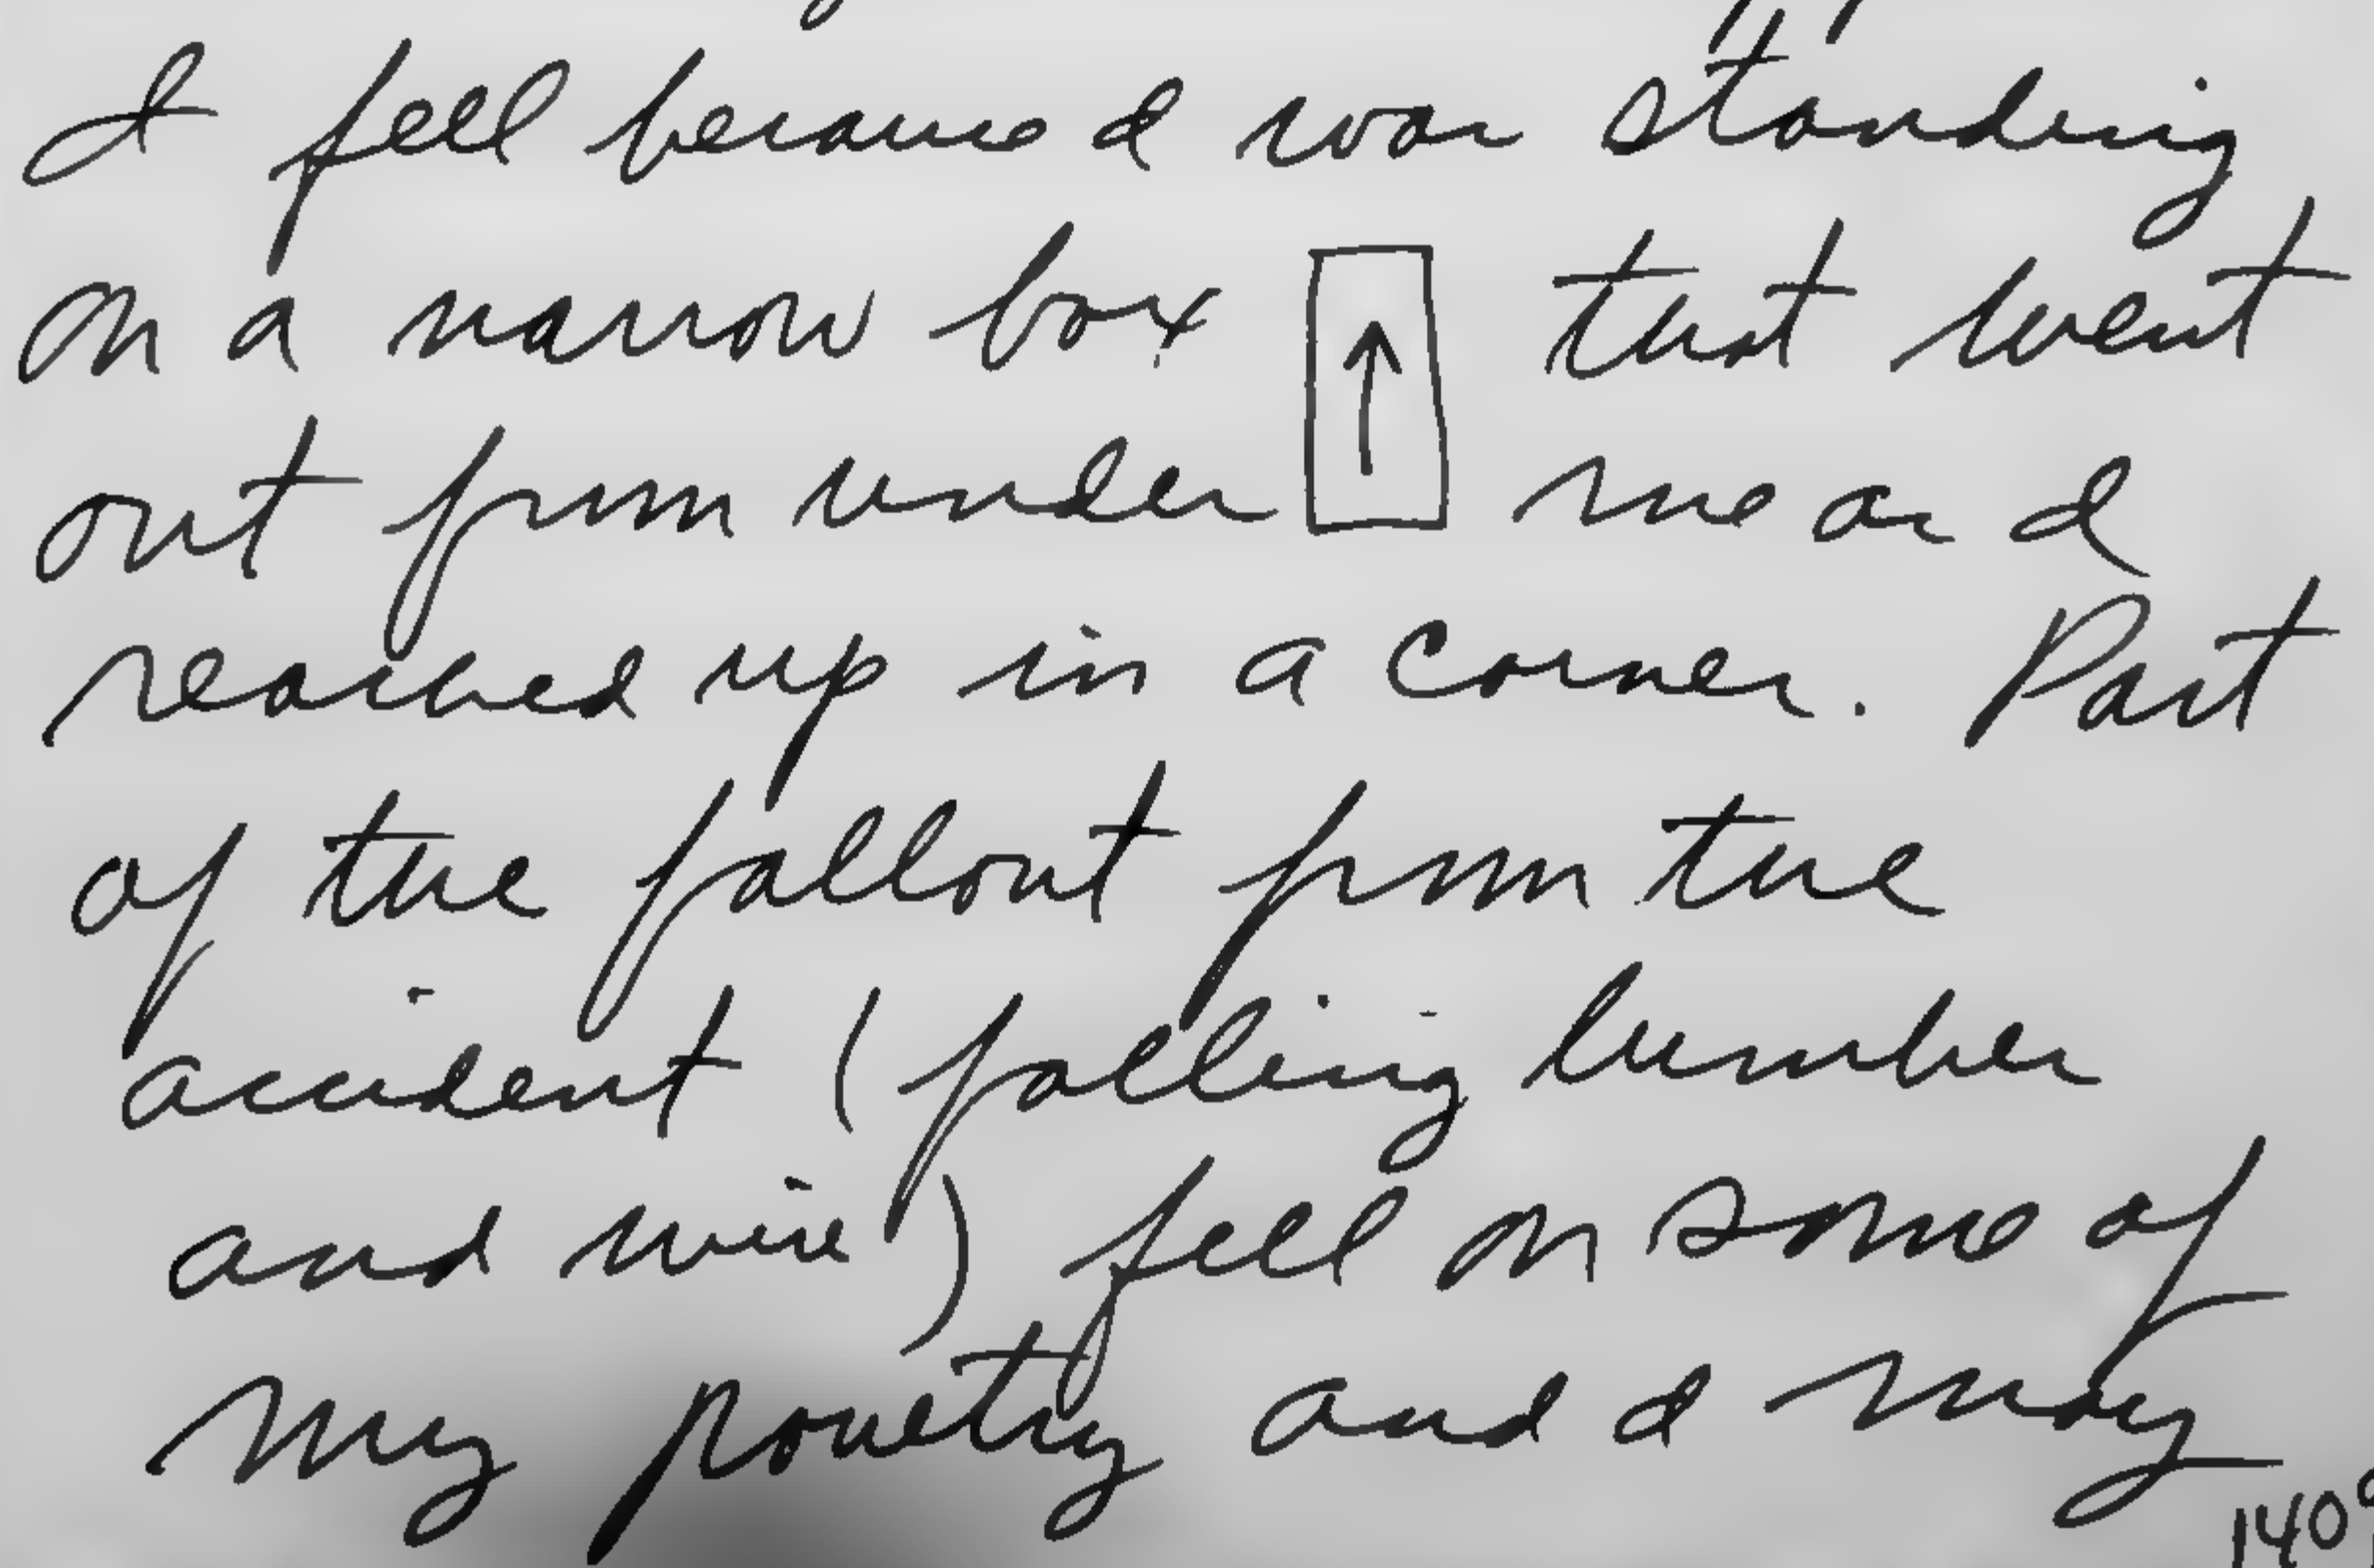 I fell because I was standing
on a narrow box that went
out from under me as I
reached up in a corner. Part
of the fallout from the
accident (falling lumber
and wire) fell on some of
my poultry and I may
140